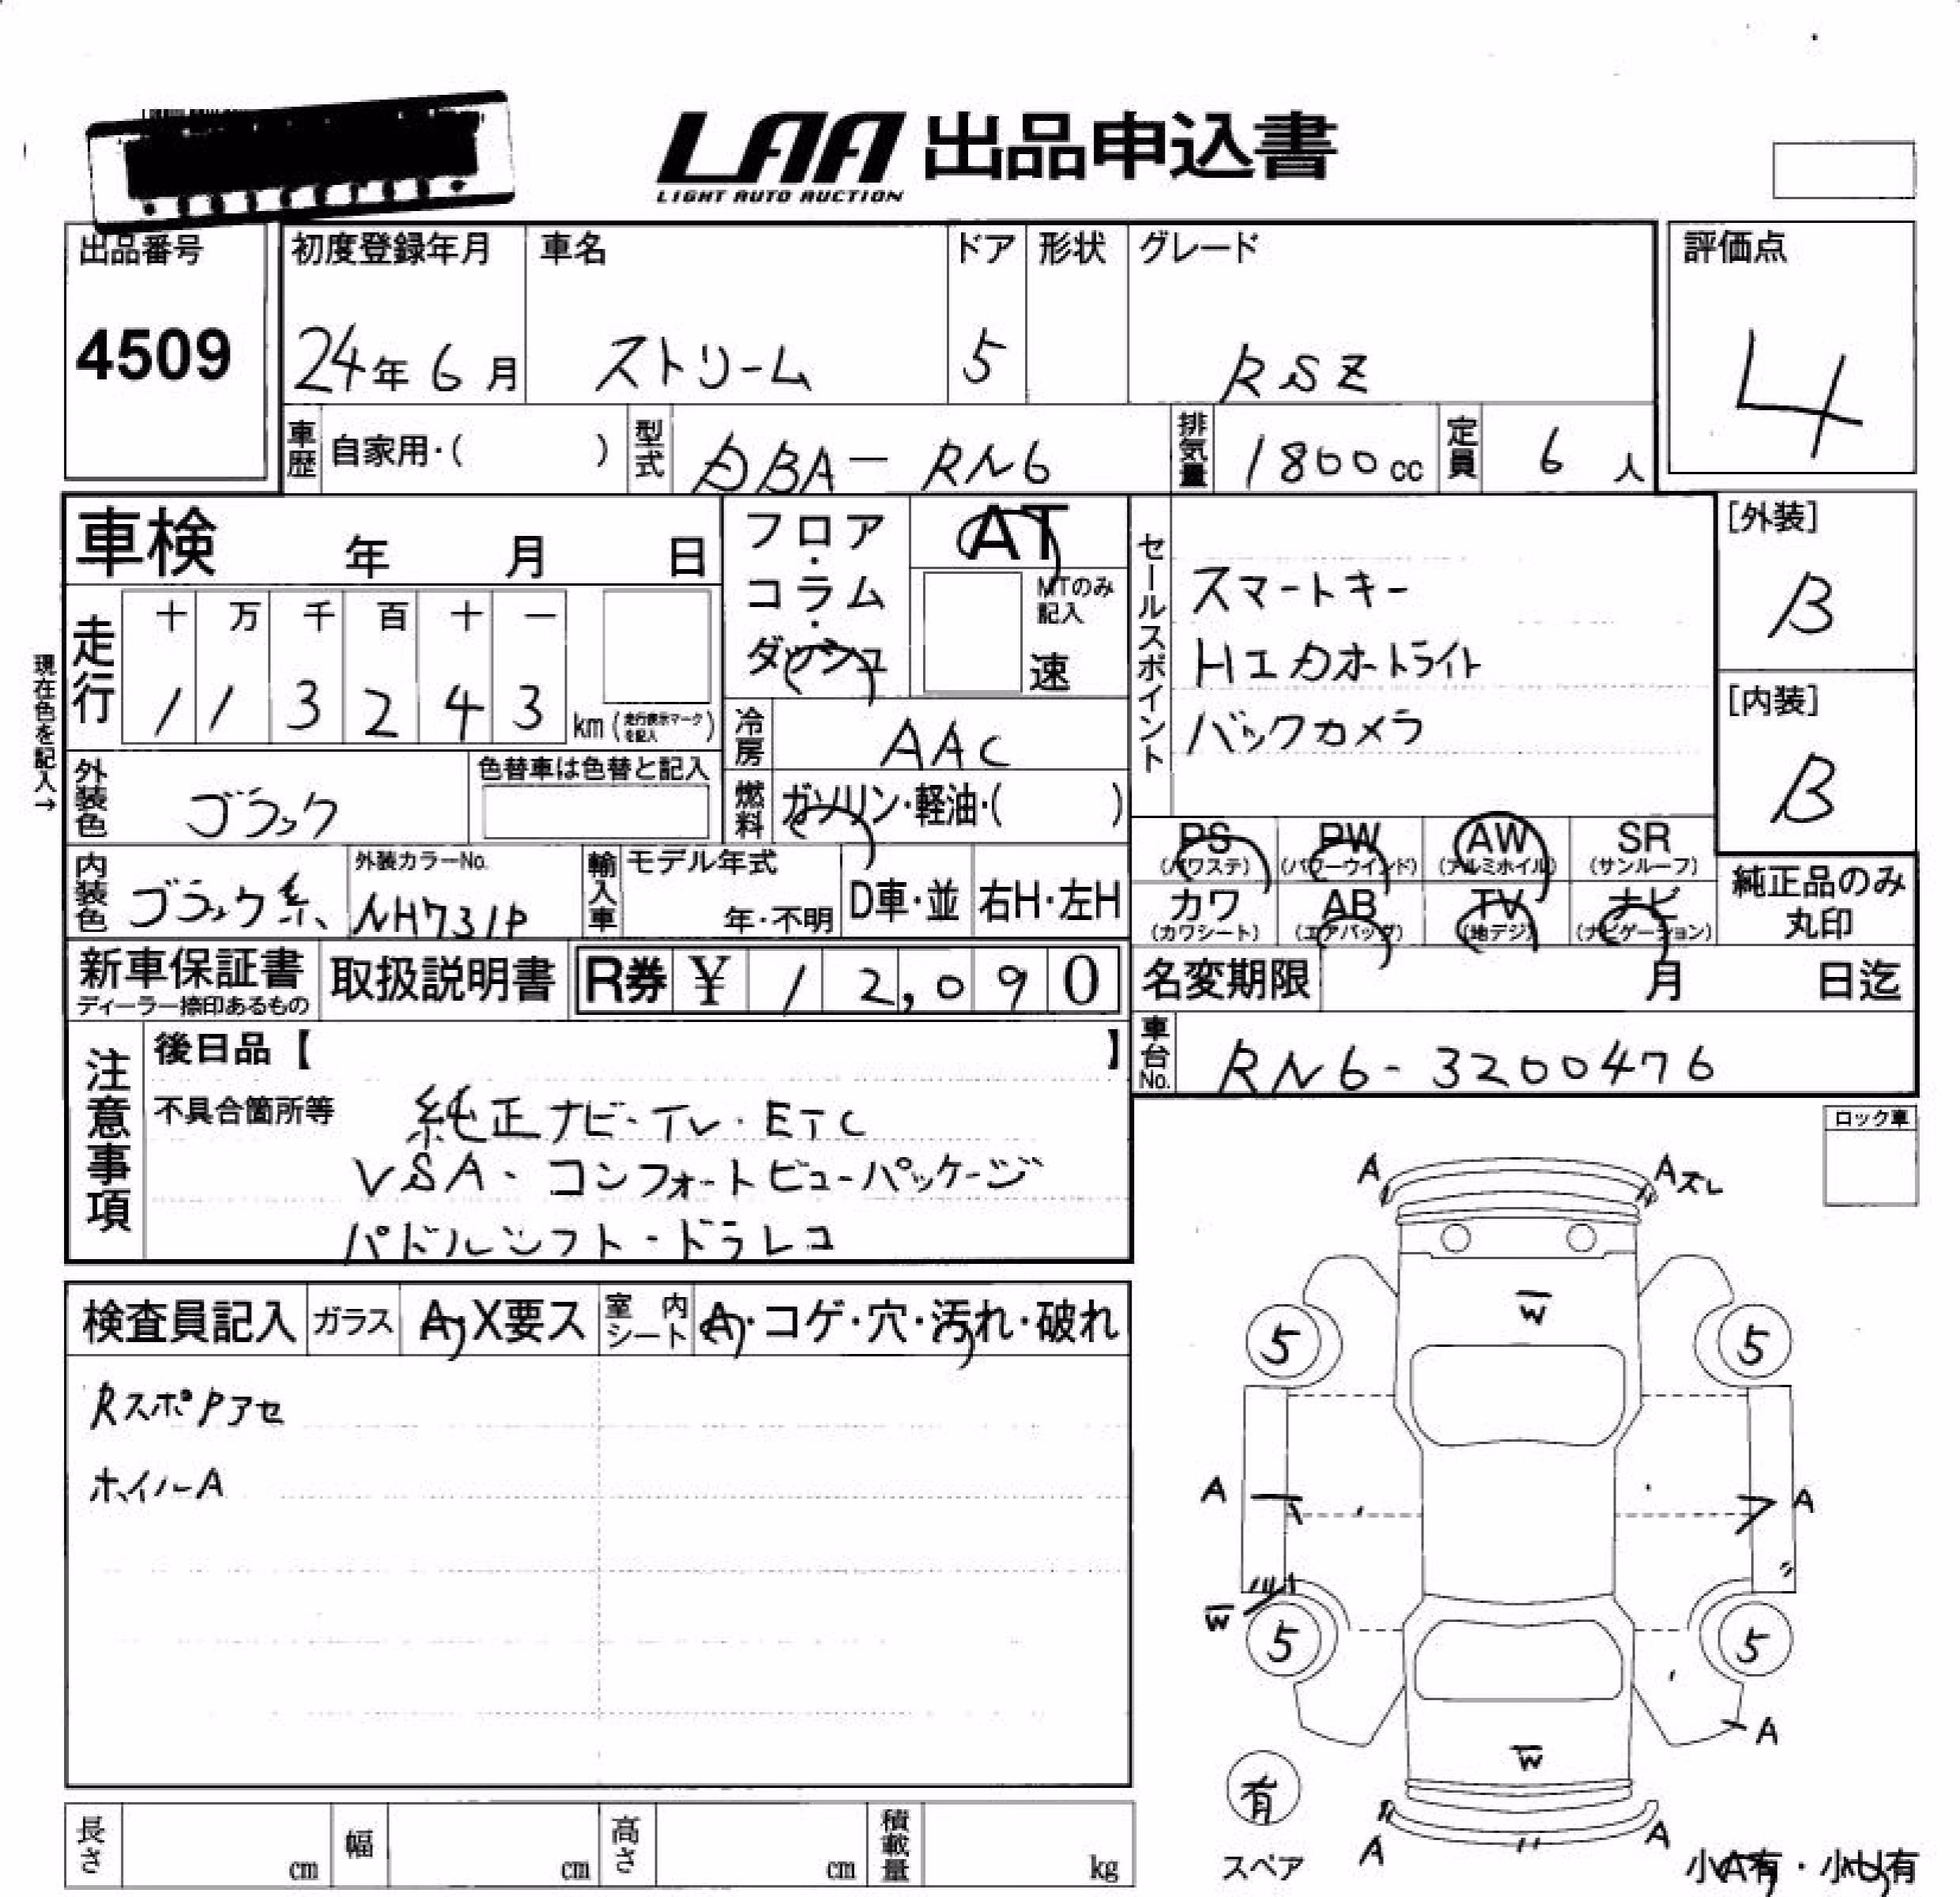 LAA 出品申込書
LIGHT AUTO AUCTION
出品番号
4509
初度登録年月
24年6月
車名
ストリーム
ドア
5
形状
グレード
RSZ
評価点
4
車歴 自家用・( )
型式 DBA-RN6
排気量 1800cc
定員 6人
車検 年 月 日
フロア・コラム・ダッシュ
AT
MTのみ記入
速
セールスポイント
スマートキー
HIDオートライト
バックカメラ
[外装]
B
[内装]
B
現在色を記入→
走行
十 万 千 百 十 一
1 1 3 2 4 3 km(走行表示マークを記入)
冷房 AAC
燃料 ガソリン・軽油・( )
外装色 ブラック
色替車は色替と記入
内装色 ブラック系
外装カラーNo.
NH731P
輸入車
モデル年式
年・不明
D車・並
右H・左H
PS (パワステ)
PW (パワーウインド)
AW (アルミホイル)
SR (サンルーフ)
カワ (カワシート)
AB (エアバッグ)
TV (地デジ)
ナビ (ナビゲーション)
純正品のみ丸印
新車保証書
ディーラー捺印あるもの
取扱説明書
R券 ¥ 12,090
名変期限 月 日迄
車台No. RN6-3200476
注意事項
後日品【 】
不具合箇所等
純正ナビ・TV・ETC
VSA・コンフォートビューパッケージ
パドルシフト・ドラレコ
ロック車
検査員記入
ガラス A・X要ス
室内シート A・コゲ・穴・汚れ・破れ
RスポPアセ
ホイルA
A
Aズレ
W
5
5
A
A
W
5
5
A
W
有
スペア
A
A
小A有・小U有
長さ cm
幅 cm
高さ cm
積載量 kg